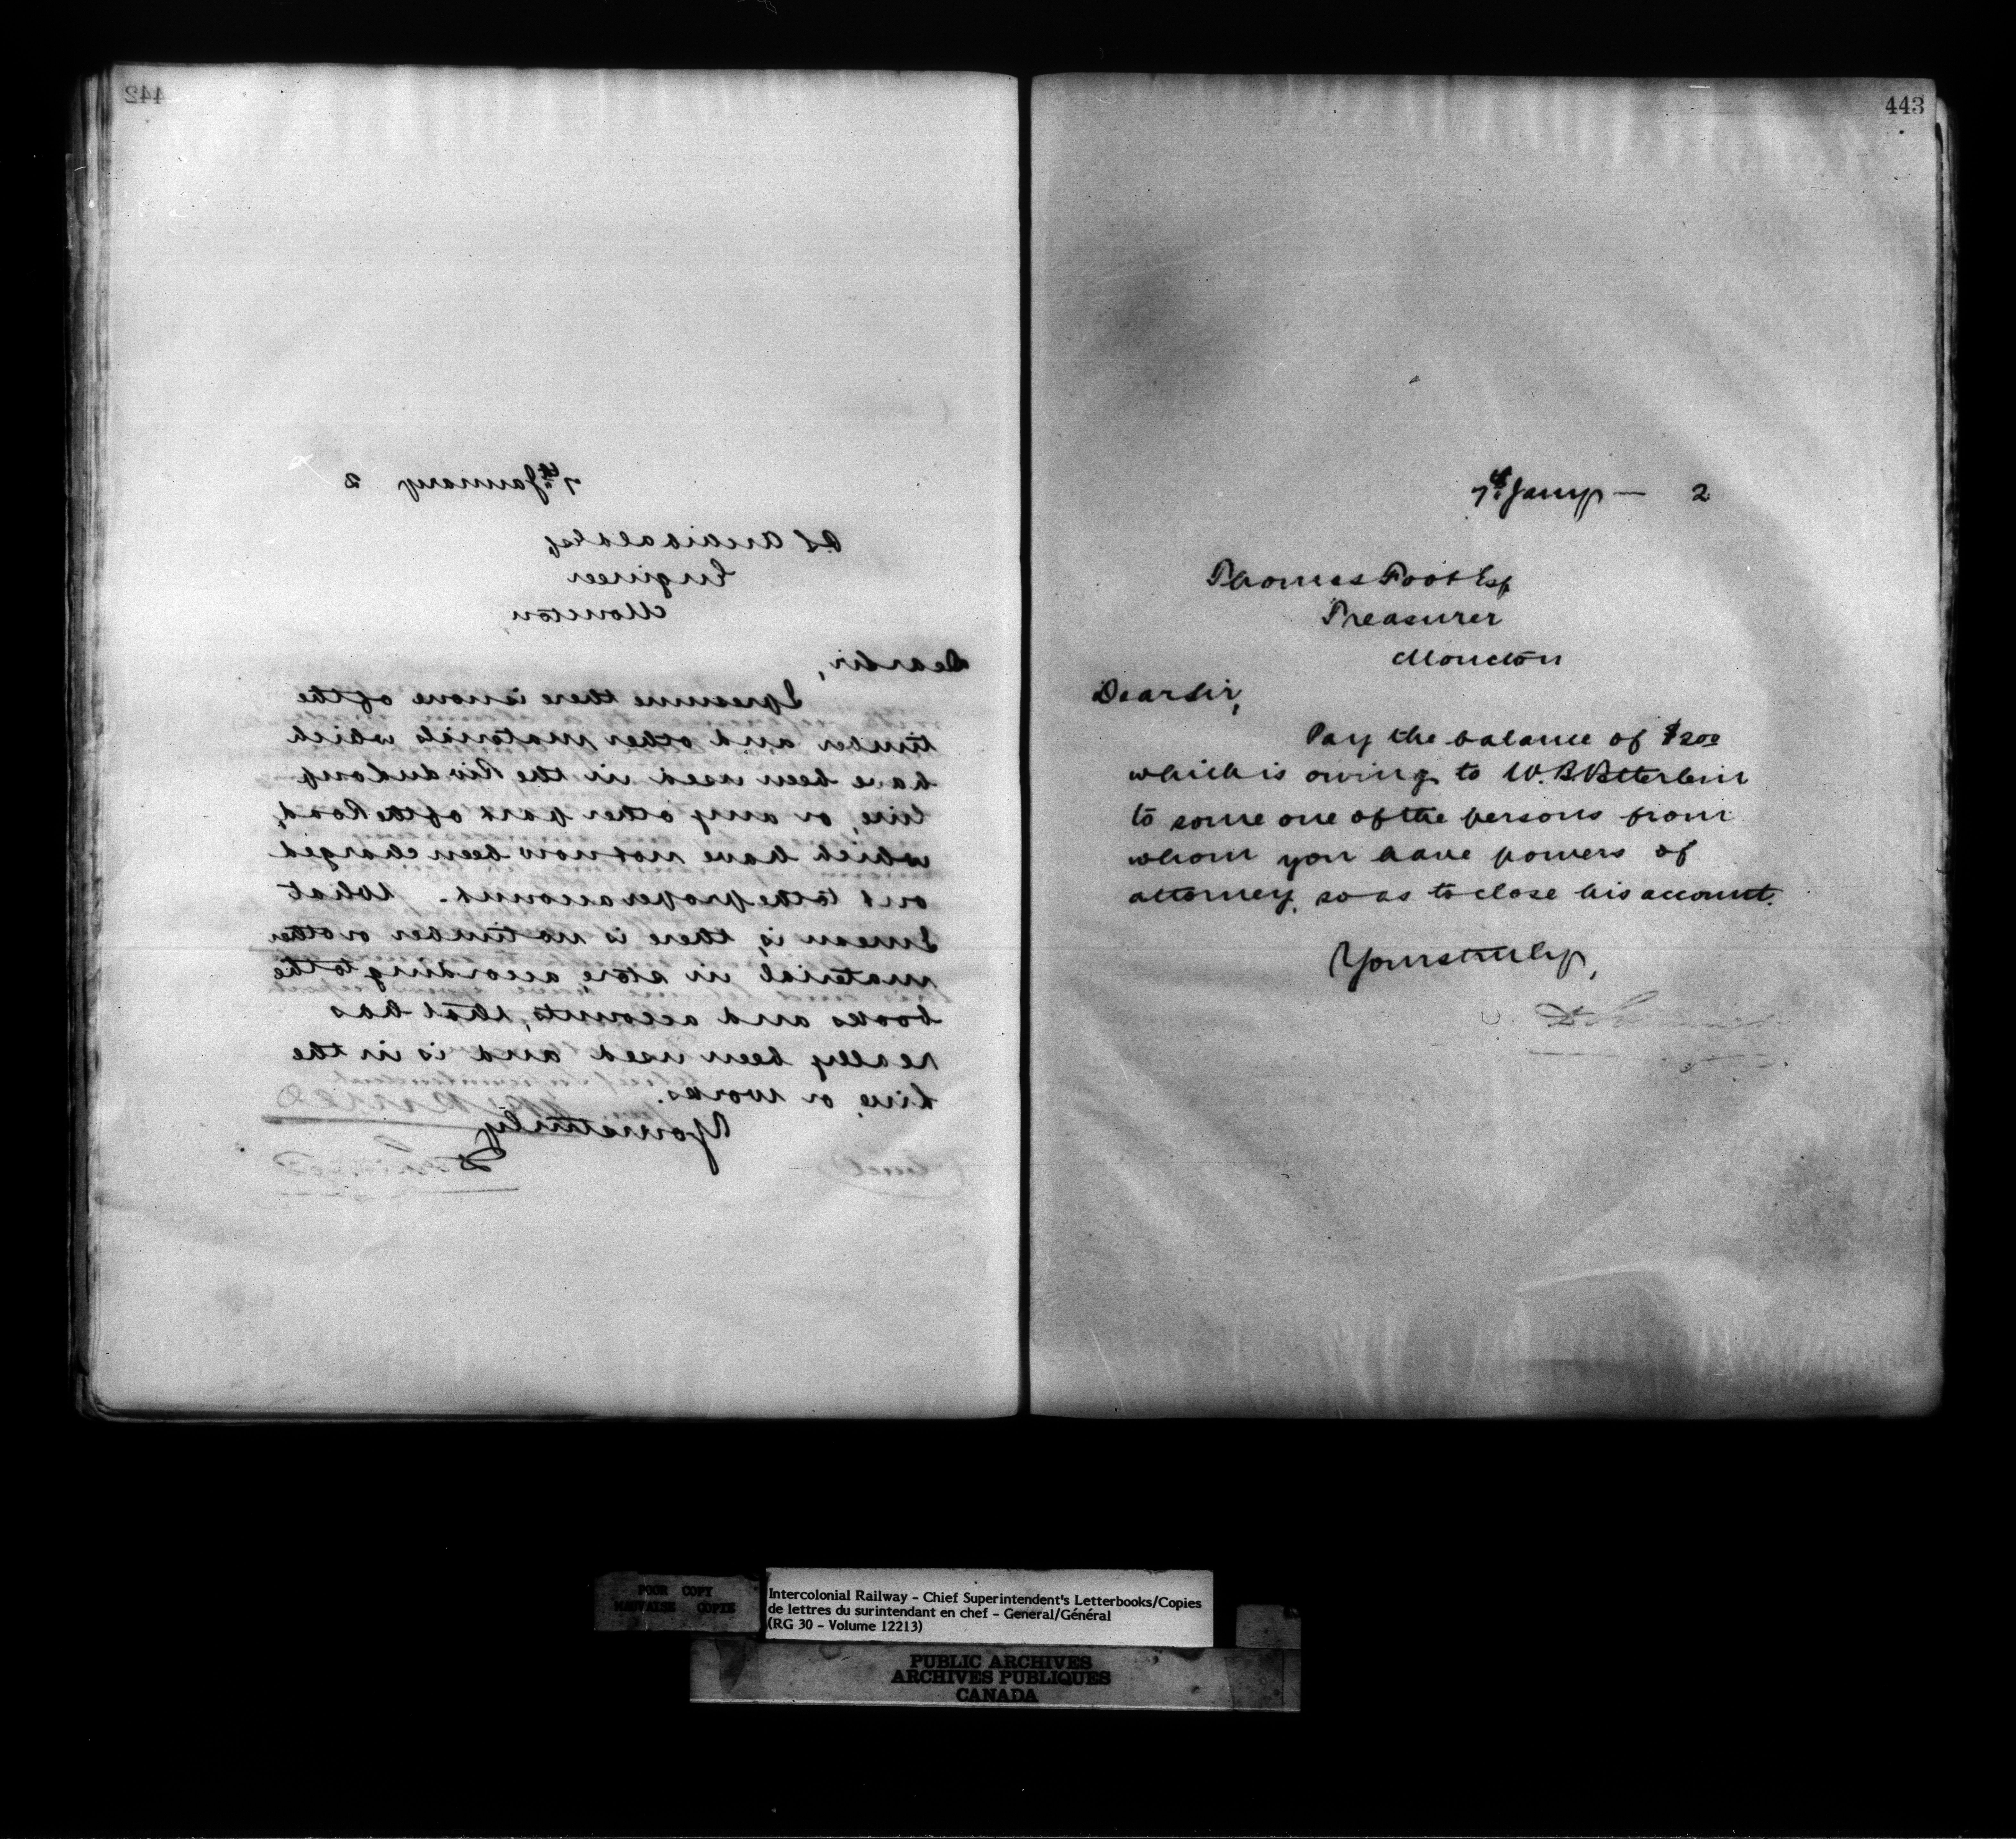 442
7th January 2
P.S. Archibald Esq
Engineer
Moncton,
Dear Sir,
I presume there is none of the
timber and other materials which
have been used in the Riv du Loup
line, or any other part of the Road,
which have not now been charged
out to the proper account. What
I mean is, there is no timber or other
material in store, according to the
books and accounts, that has
really been used and is in the
line, or works.
Yours truly
443
7th Jany — 2
Thomas Foot Esq
Treasurer
Moncton
Dear Sir,
Pay the balance of
which is owing to W. B.
to some one of the persons from
whom you have powers of
attorney, so as to close his account.
Yours truly,
POOR COPY
MAUVAISE COPIE
Intercolonial Railway - Chief Superintendent's Letterbooks/Copies
de lettres du surintendant en chef - General/Général
(RG 30 - Volume 12213)
PUBLIC ARCHIVES
ARCHIVES PUBLIQUES
CANADA